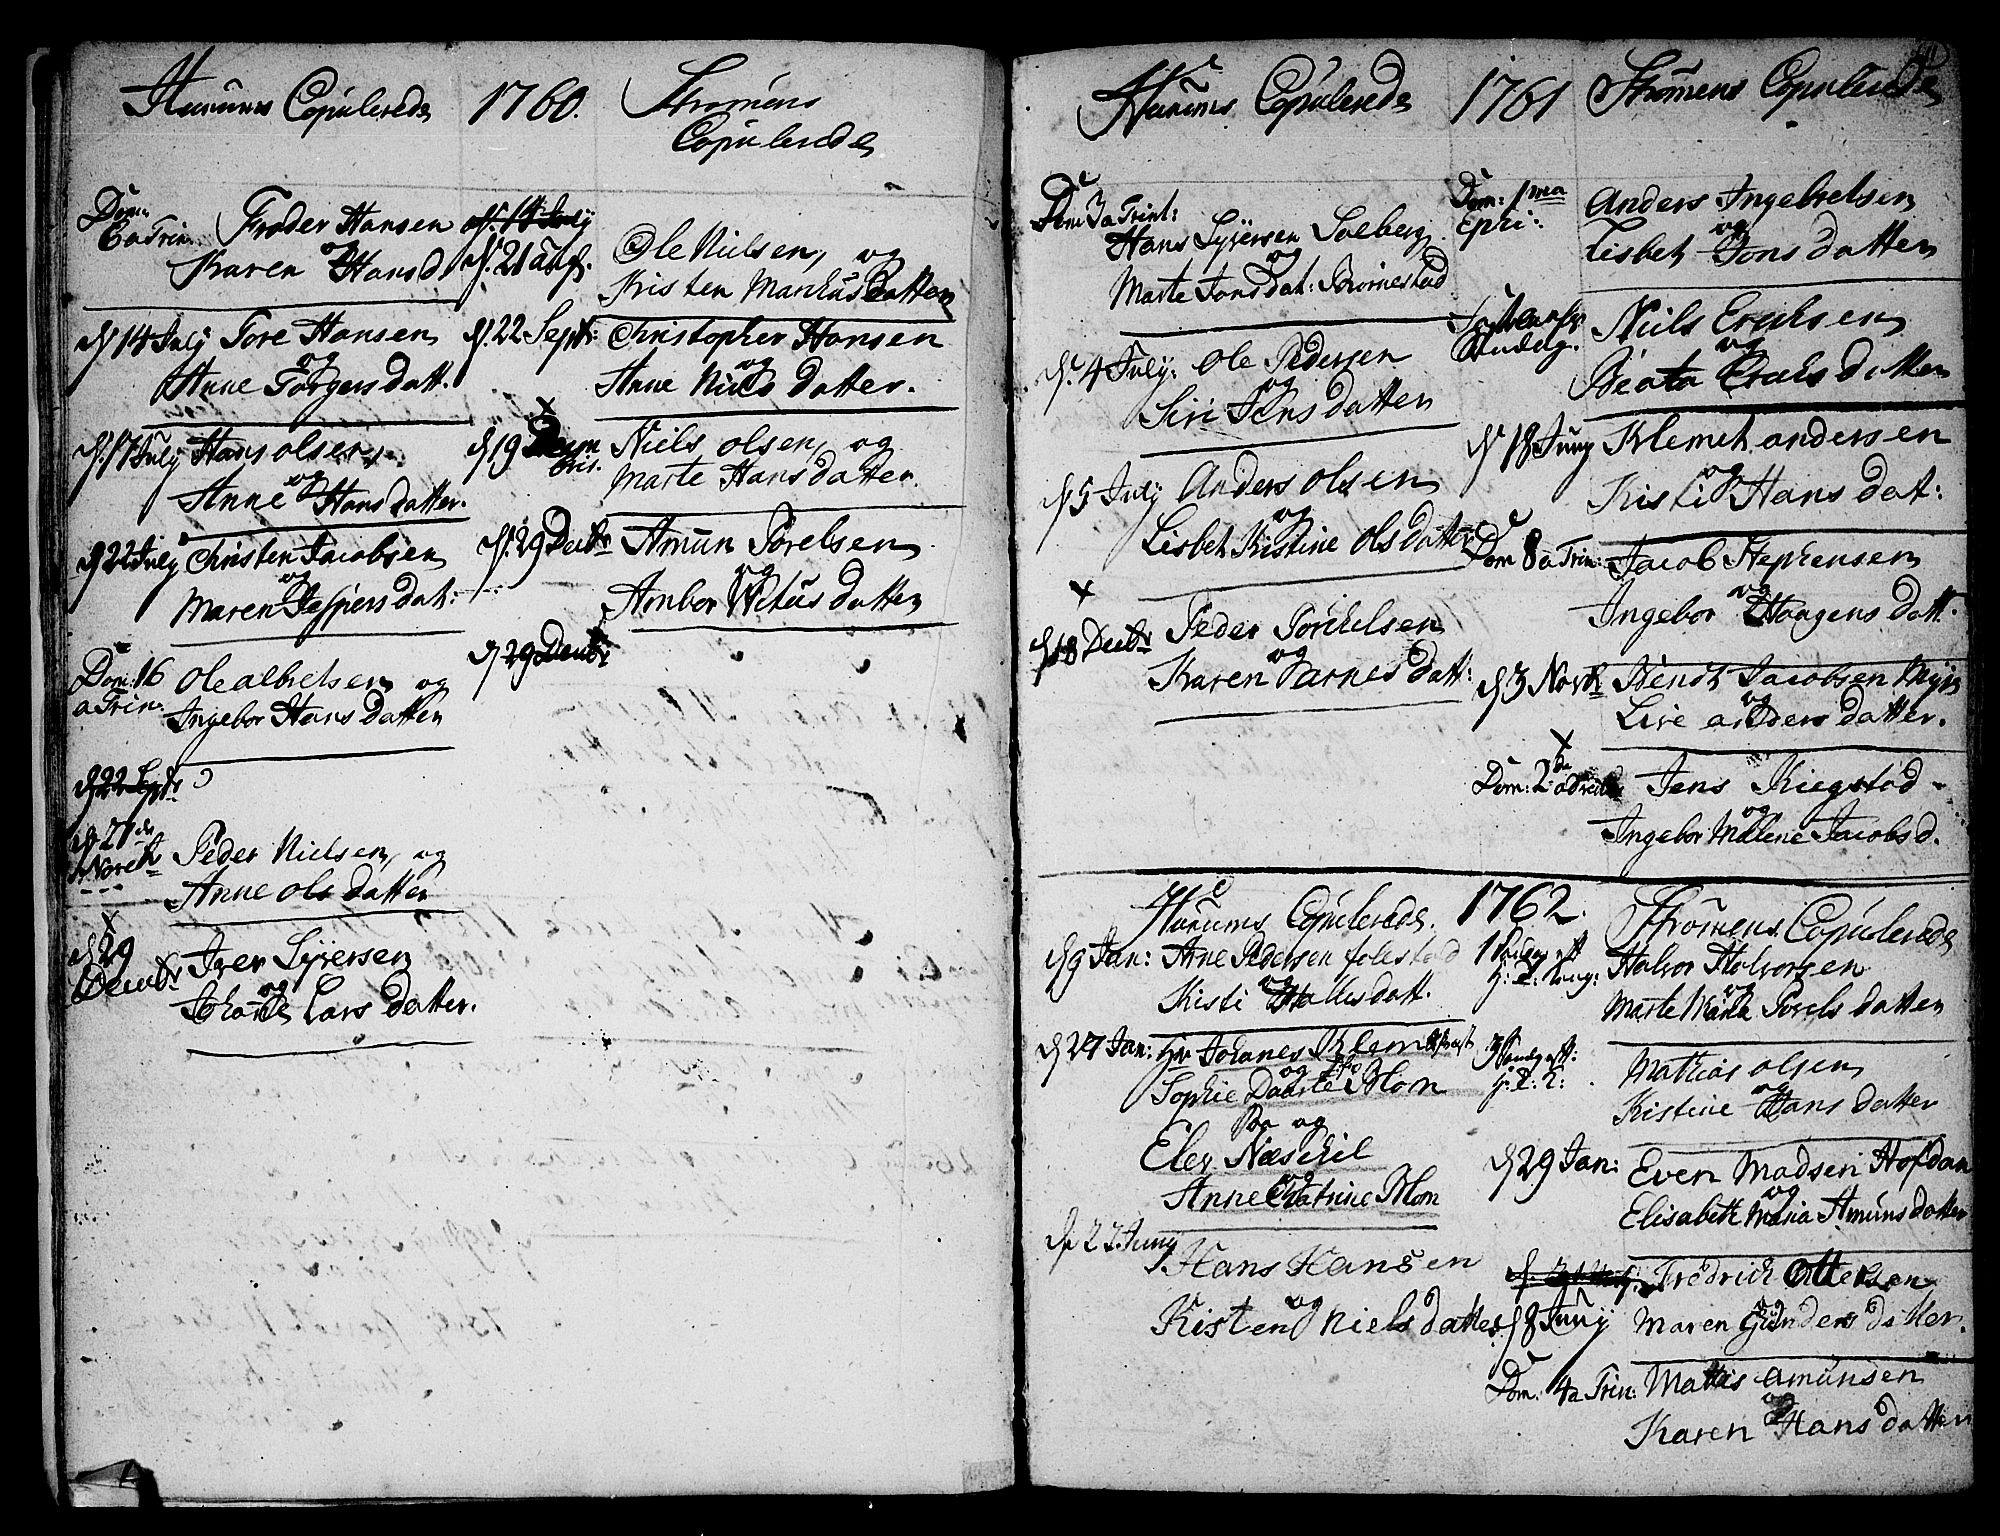 Hurums Copulerede 1760.
Dom: 6 a Trin: Froder Hansen
og
Karen Hansd.
d. 14 July Tore Hansen
og
Anne Torgersdatt.
d. 17 July Hans olsen
og
Anne Hansdatter.
d 22 July Christen Jacobsen
og
Maren Jespersdat:
Dom: 16 a Trin. Ole albretsen og
Ingebor Hansdatter
d 22 Septr
d 27de Novr Peder Nielsen, og
Anne olsdatter
d 29 Decbr Iver Syversen
og
Larsdatter.
Strømens
Copulerede
d. 19 July
d. 21 aug. Ole Nielsen, og
Kristen Markusdatter
d. 22 Septr: Christopher Hansen
og
Anne Nielsdatter.
d 19 Niels olsen, og
Marte Hansdatter.
d. 29 Decbr Amun Torelsen
og
Ambor Vetusdatter
d 29 Decbr:
Hurums Copulerede 1761
Dom 3 a Trint:
Hans Syversen Solberg
og
Marte Jonsdat:
d. 4 July: Ole Pedersen
og
Siri Jensdatter
d 5 July Anders olsen
og
Lisbet Kistine olsdatter
d 18 Decbr Peder Torchelsen
og
Karen arnesdatt:
Strømens Copulerede
Dom: 1ma Epi: Anders Ingebretsen
og
Lisbet Jonsdatter
Niels Eriksen
og
Beata Eriksdatter
d 18 Juny Klemet andersen
og
Kisti Hansdat:
Dom 8 a Trin: Jacob Stephensen
og
Ingebor Haagensdatt.
d 3 Novbr Bendt Jacobsen
og
Live andersdatter.
Dom: 2 Jens Kiegstad
og
Ingebor Malene Jacobsd.
Hurums Copulerede. 1762.
d 9 Jan: Arne Pedersen folestad
og
Kisti Hallesdatt.
d 27 Jan: Hr Johanes Klem
og
Sophie Blom
og
Eley Næskil
og
Anne Catrine Blom
d 22 Juny
Hans Hansen
og
Kisten Nielsdatter
Strømens Copulerede
Halvor Halvorsen
og
Marte Maria Torelsdatter
Mathias olsen
og
Kistine Hansdatter
d 29 Jan: Even Madsen Hofdan
og
Elisabeth Maria Amunsdatter
Fredrich Ottersen
og
d 8 Juny Maren Gundersdatter.
Dom: 4 a Trin: Mattis amunsen
og
Karen Hansdatter